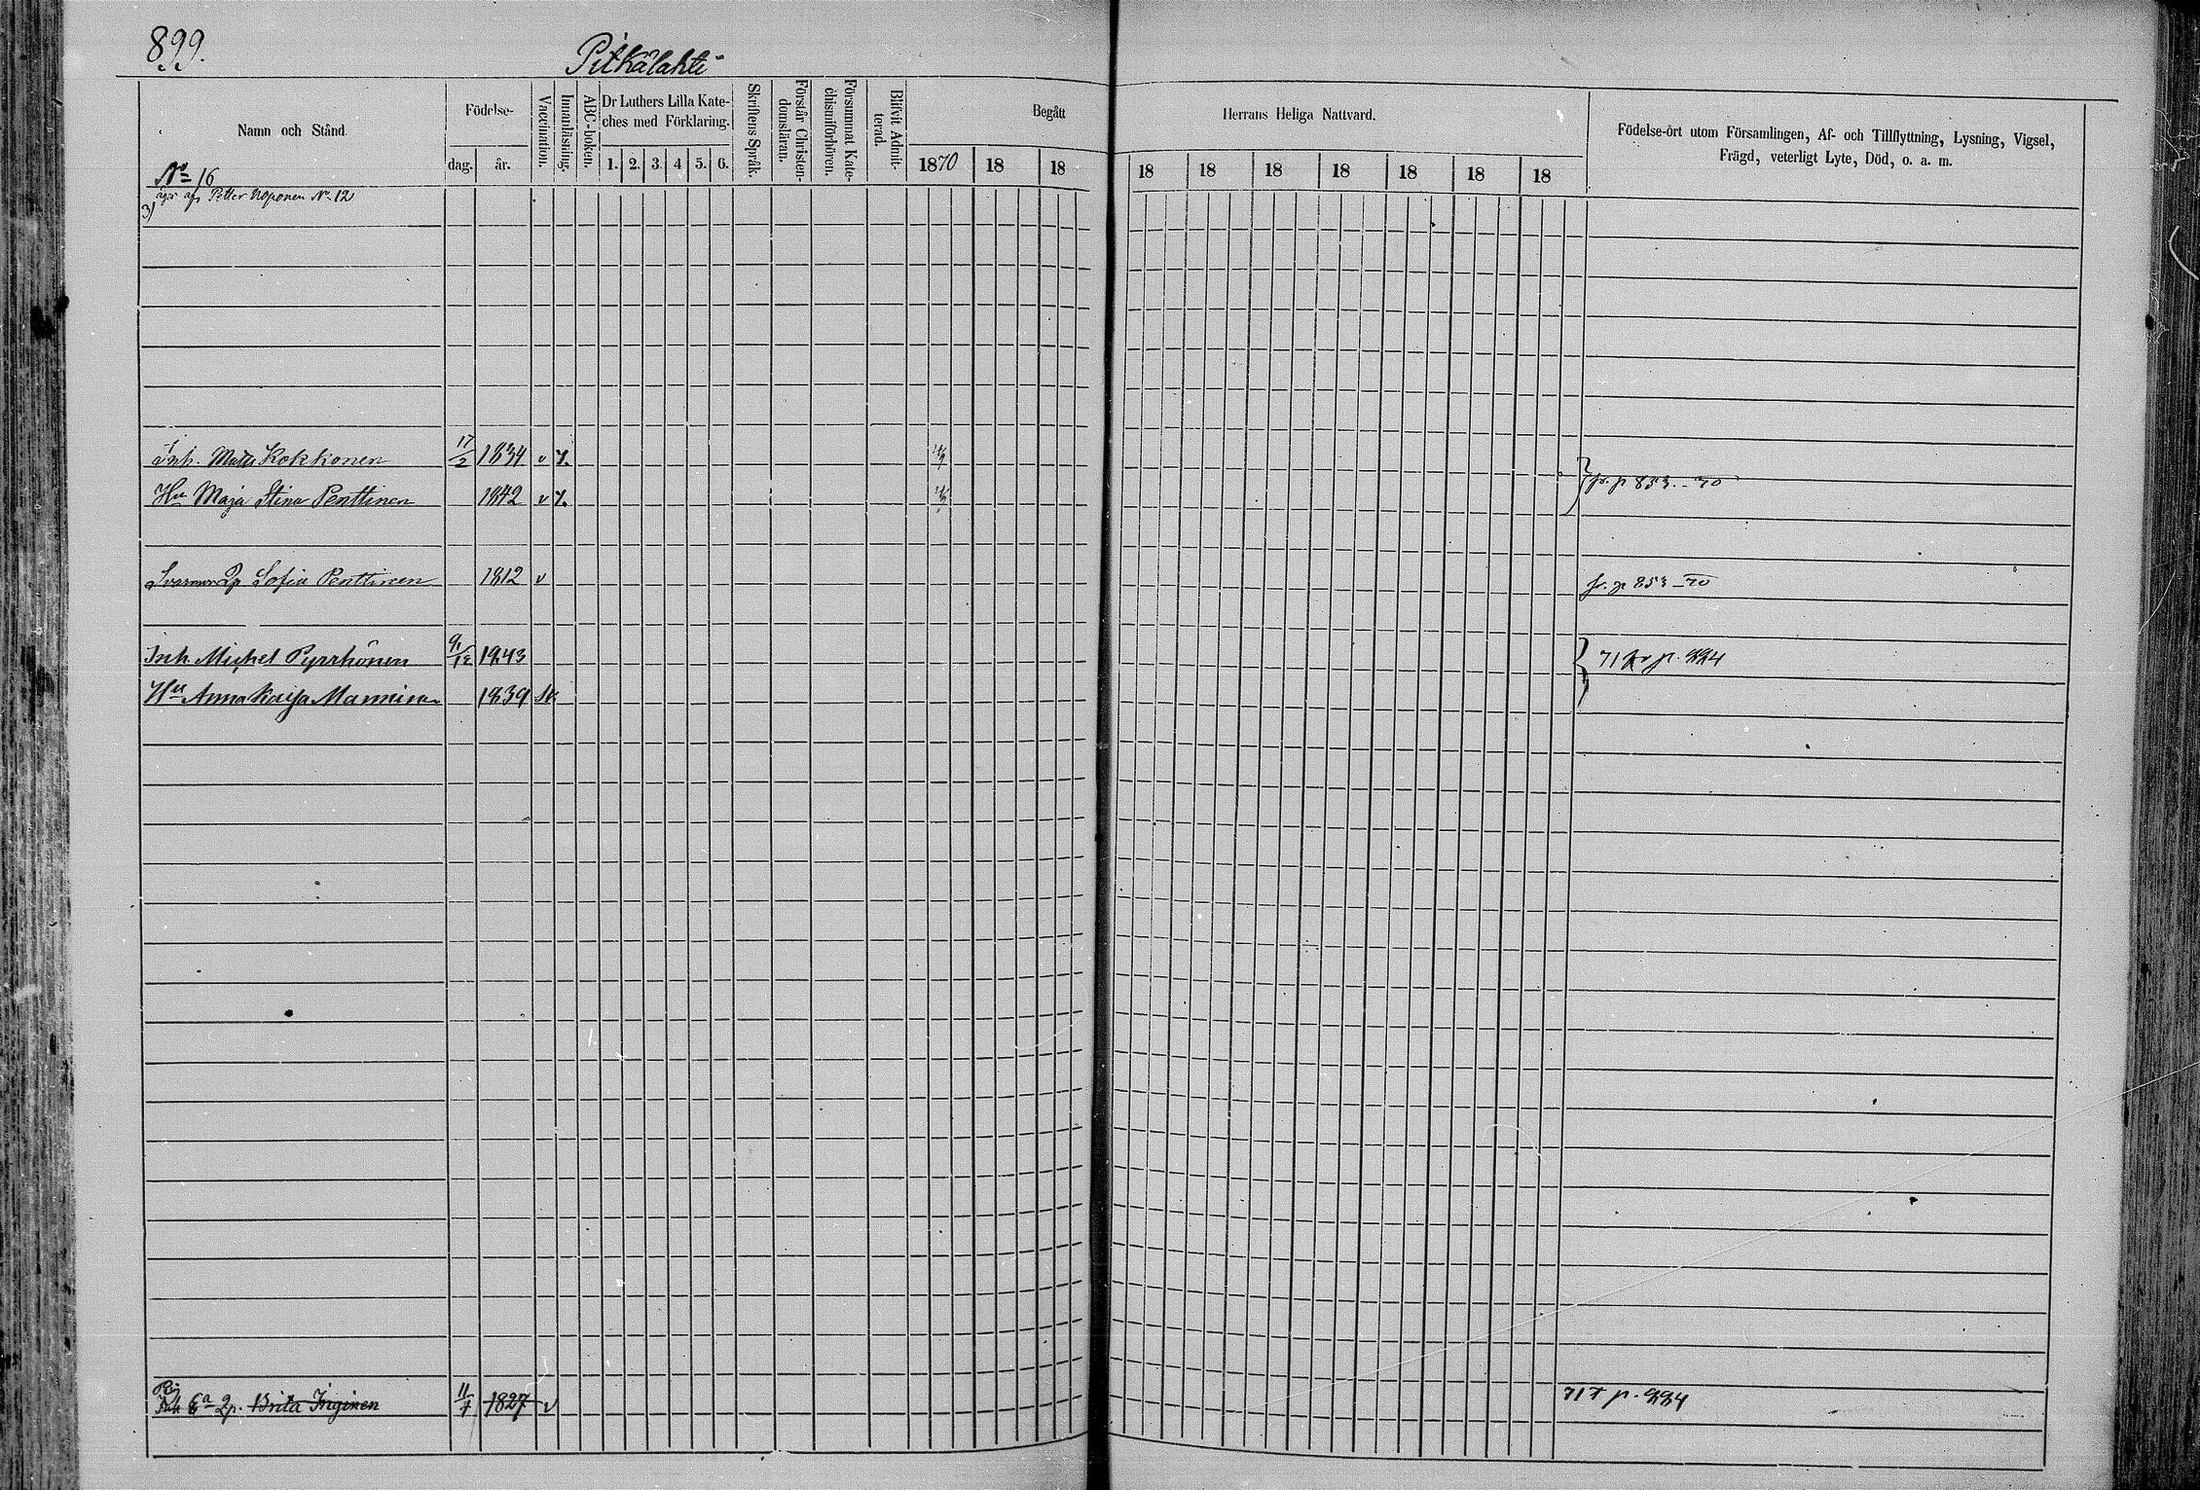 899.
Pitkälahti
Namn och Stånd.
Födelse-
dag.
år.
Vaccination.
Innanläsning.
ABC-boken.
Dr Luthers Lilla Kate-
ches med Förklaring.
1. 2. 3. 4. 5. 6.
Skriftens Språk.
Förstår Christen-
domsläran.
Försummat Kate-
chismiförhören.
Blifvit Admit-
terad.
Begått
Herrans Heliga Nattvard.
1870 18 18 18 18 18 18 18 18 18
Födelse-ort utom Församlingen, Af- och Tillflyttning, Lysning, Vigsel,
Frägd, veterligt Lyte, Död, o. a. m.
No 16
3) äges af Petter Noponen No 12
Inh. Matts Kokkonen 17/2 1834 v
Hu Maja Stina Penttinen 1842 v
fr. p 853 - 70
Svärmor Sofia Penttinen 1812 v fr. p 853 - 70
Inh. Michel Pyrrhönen 9/12 1843
Hu Anna Kaisa Manninen 1839
71 fr p. 994
Ea Brita Inginen 11/7 1827 v
71 p. 994